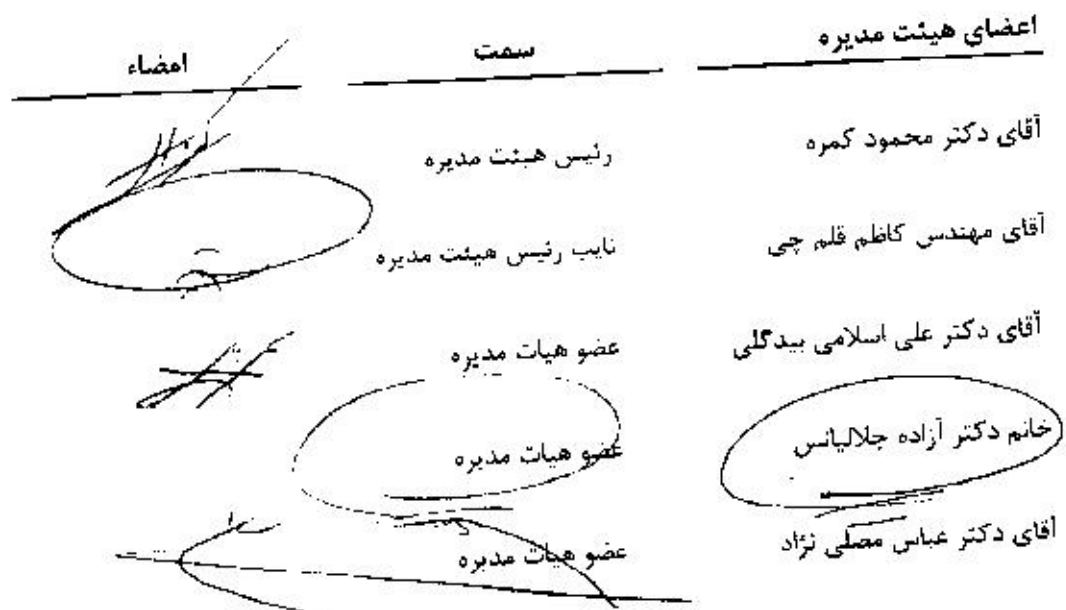 اعضای هیئت مدیره سمت امضاء
آقای دکتر محمود کمره رئیس هیئت مدیره
آقای مهندس کاظم قلم چی نایب رئیس هیئت مدیره
آقای دکتر علی اسلامی بیدگلی عضو هیات مدیره
خانم دکتر آزاده جلالیانس عضو هیات مدیره
آقای دکتر عباس مصلی نژاد عضو هیات مدیره